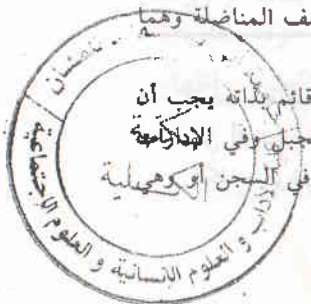 ف المناضلة وهما
قائم بذاته يجب أن
جبل وفي
في السجن أو
الآداب و العلوم الإنسانية و العلوم الاجتماعية